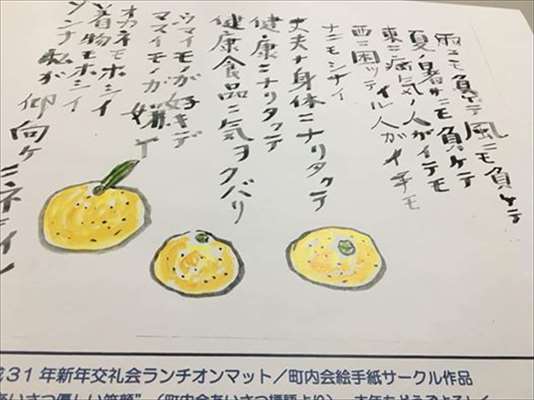 雨ニモ負ケテ風ニモ負ケテ
夏ノ暑サニモ負ケテ
東ニ病気ノ人がイテモ
西ニ困ッテイル人がイテモ
ナニモシナイ
丈夫ナ身体ニナリタクテ
健康ニナリタクテ
健康食品ニ気ヲクバリ
ウマイモノが好キデ
マズイモノが嫌イ
オカネモホシイ
着物モホシイ
ソンナ私が仰向ケニネテイ
31年新年交礼会ランチオンマット／町内会絵手紙サークル作品
いさつ優しい笑顔”（町内会あいさつ標語より）